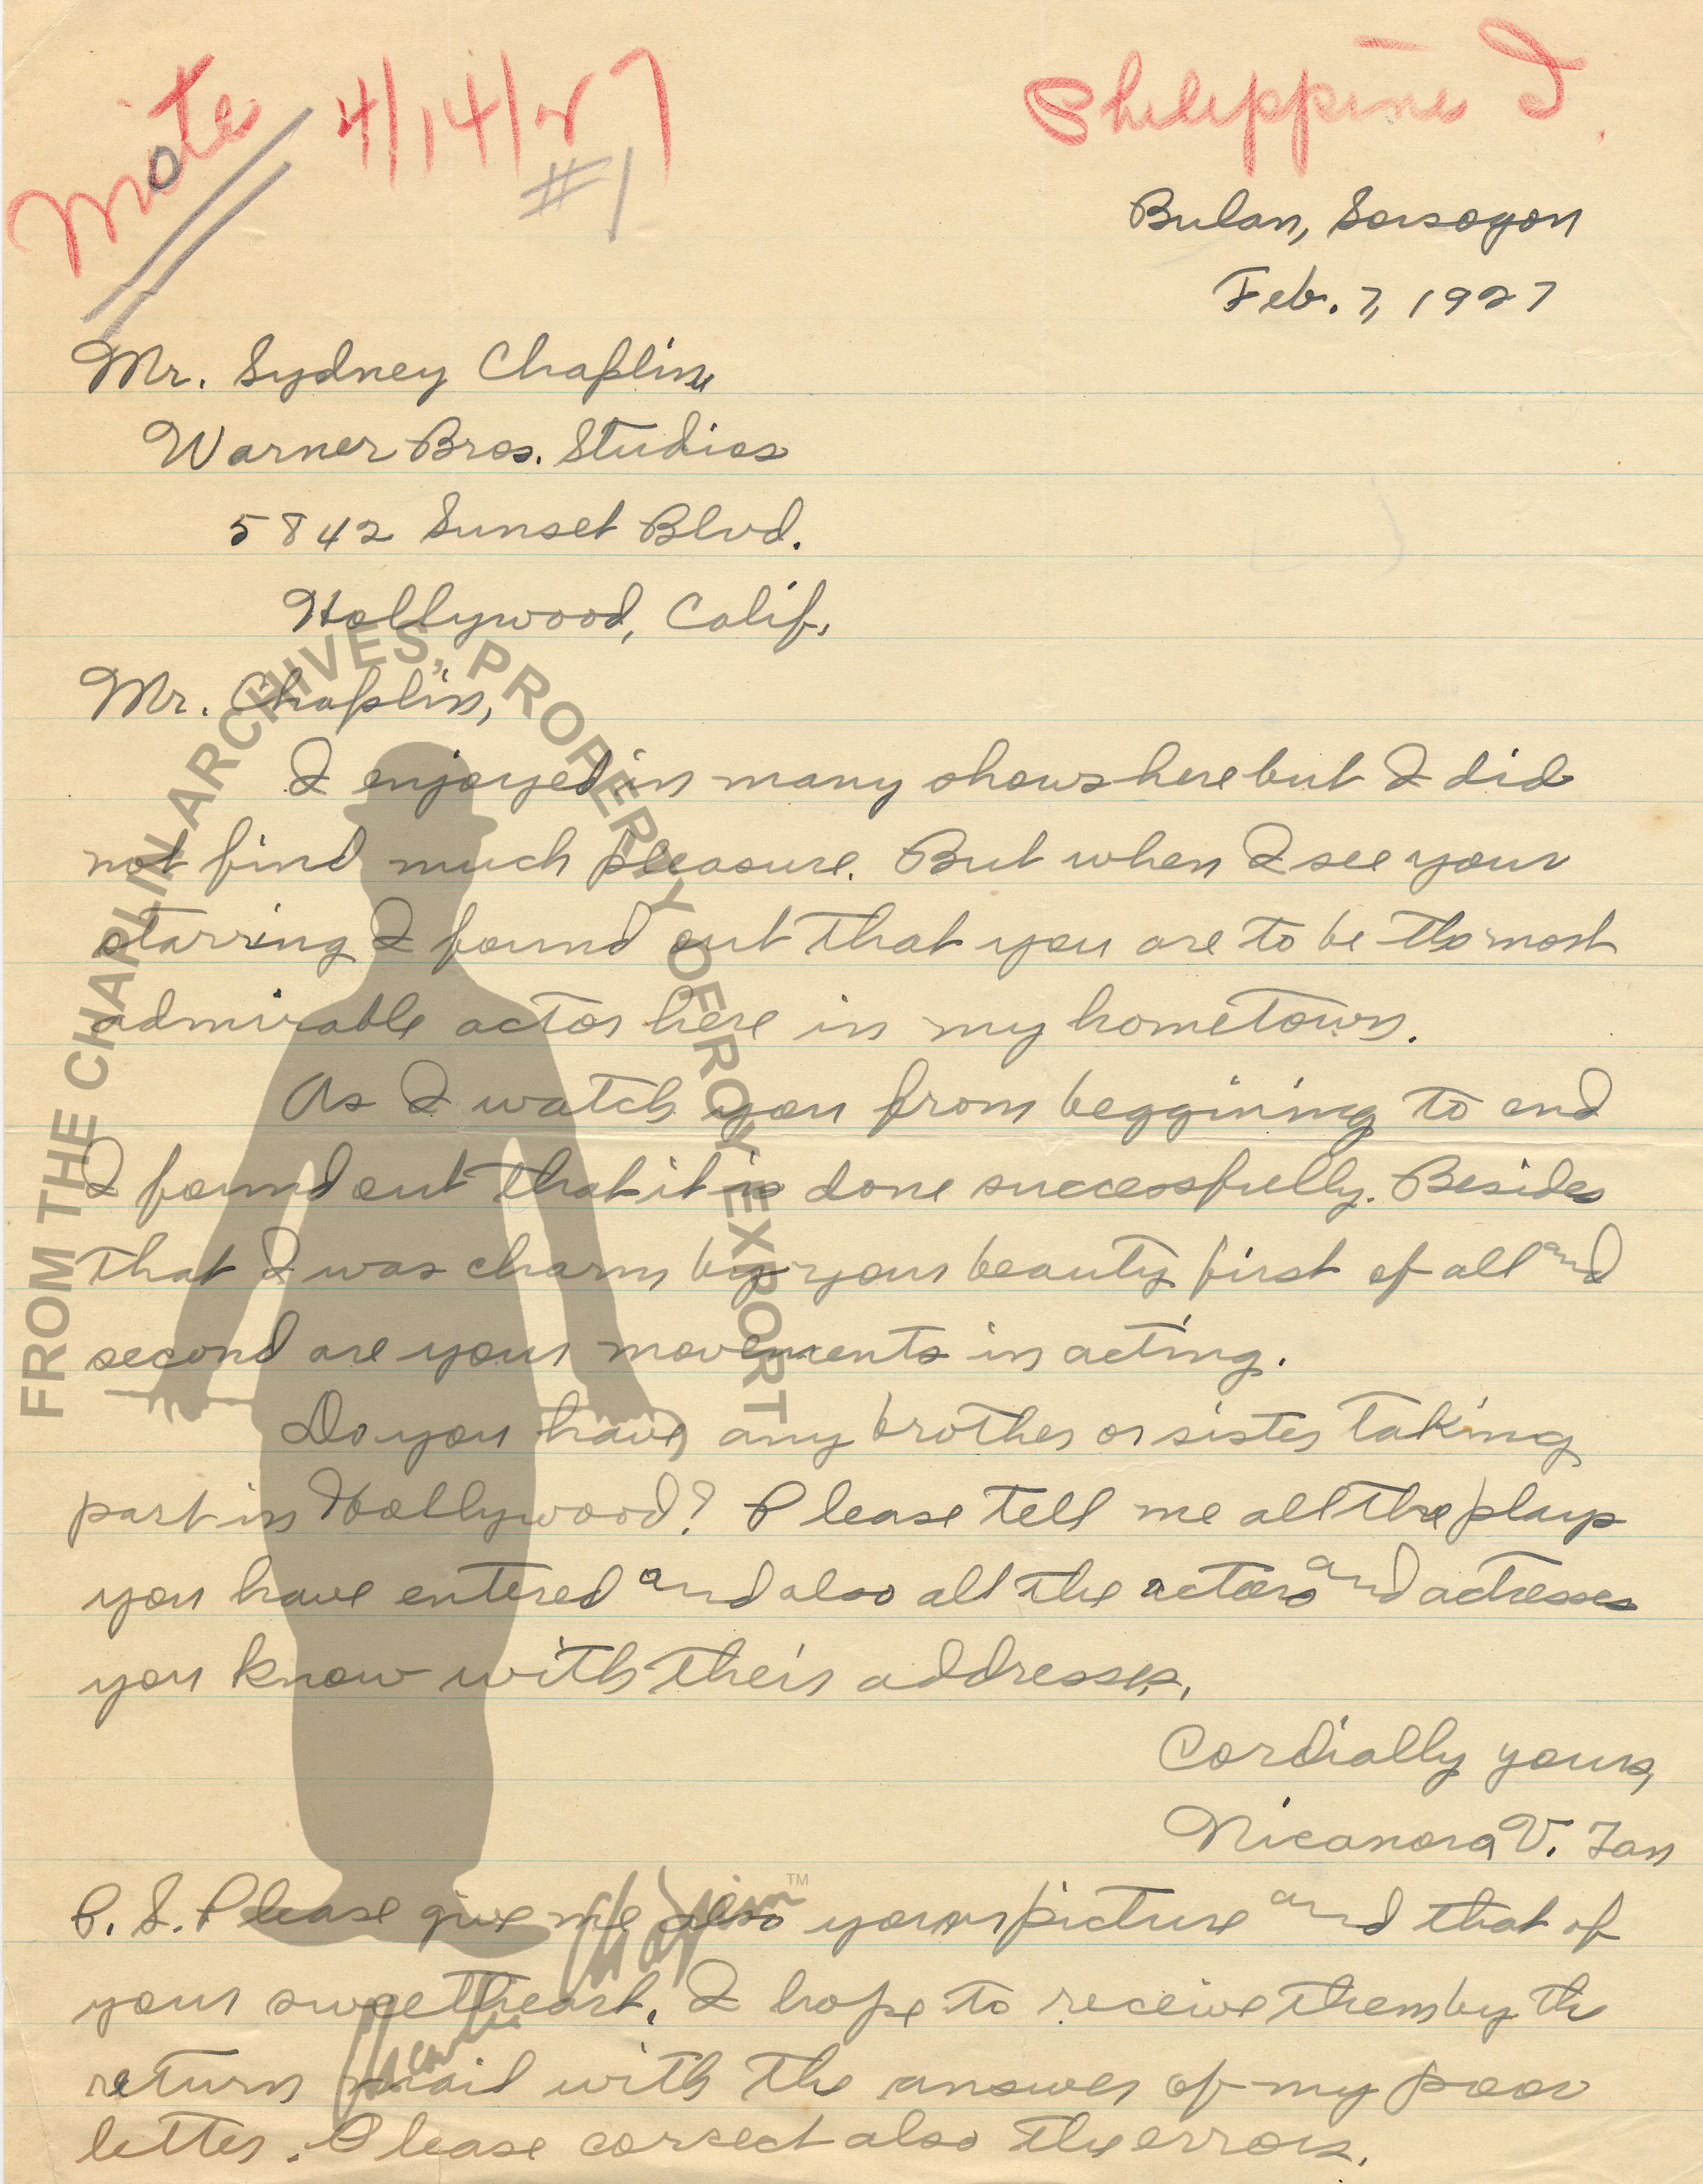 Note 4/14/27
#1
Philippine I.
Bulan, Sorsogon
Feb. 7, 1927
Mr. Sydney Chaplin
Warner Bros. Studios
5842 Sunset Blvd.
Hollywood, Calif,
Mr. Chaplin,
I enjoyed in many shows here but I did
not find much pleasure. But when I see your
starring I found out that you are to be the most
admirable actor here in my hometown.
As I watch you from beggining to end
I found out that it is done successfully. Besides
that I was charm by your beauty first of all and
second are your movements in acting.
Do you have any brother or sister taking
part in Hollywood? Please tell me all the plays
you have entered and also all the actors and actresses
you know with their addresses.
Cordially yours,
Nicanora V. Tan
P.S. Please give me also your picture and that of
your sweetheart. I hope to receive them by the
return mail with the answer of my poor
letter. Please correct also the errors.
FROM THE CHAPLIN ARCHIVES, PROPERTY OF ROY EXPORT
Charlie Chaplin™